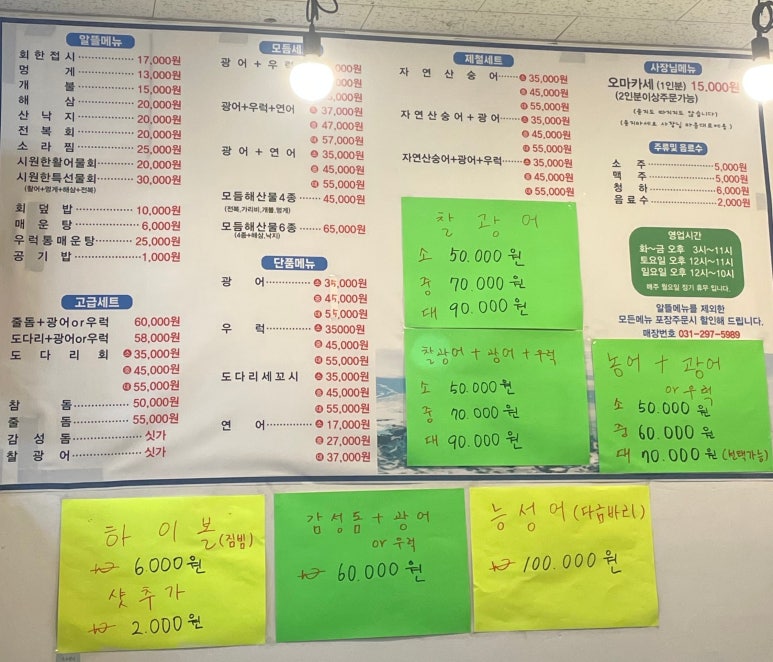 알뜰메뉴
회 한 접 시 17,000원
멍 게 13,000원
개 불 15,000원
해 삼 20,000원
산 낙 지 20,000원
전 복 회 20,000원
소 라 찜 25,000원
시원한활어물회 20,000원
시원한특선물회 30,000원
(활어+멍게+해삼+전복)
회 덮 밥 10,000원
매 운 탕 6,000원
우럭통매운탕 25,000원
공 기 밥 1,000원
고급세트
줄돔+광어or우럭 60,000원
도다리+광어or우럭 58,000원
도 다 리 회 소 35,000원
중 45,000원
대 55,000원
참 돔 50,000원
줄 돔 55,000원
감 성 돔 싯가
찰 광 어 싯가
모듬세
광 어 + 우 럭
광어+우럭+연어 소 37,000원
중 47,000원
대 57,000원
광 어 + 연 어 소 35,000원
중 45,000원
대 55,000원
모듬해산물4종 45,000원
(전복,가리비,개불,멍게)
모듬해산물6종 65,000원
(4종+해삼,낙지)
단품메뉴
광 어 소 35,000원
중 45,000원
대 55,000원
우 럭 소 35000원
중 45,000원
대 55,000원
도다리세꼬시 소 35,000원
중 45,000원
대 55,000원
연 어 소 17,000원
중 27,000원
대 37,000원
제철세트
자 연 산 숭 어 소 35,000원
중 45,000원
대 55,000원
자 연 산 숭 어 + 광 어 소 35,000원
중 45,000원
대 55,000원
자연산숭어+광어+우럭 소 35,000원
중 45,000원
대 55,000원
찰 광 어
소 50.000원
중 70.000원
대 90.000원
찰광어 + 광어 + 우럭
소 50.000원
중 70.000원
대 90.000원
사장님메뉴
오마카세 (1인분) 15,000원
(2인분이상주문가능)
(묻지도 따지지도 않습니다)
(묻지마세요 사장님 마음대로예용.)
주류및 음료수
소 주 5,000원
맥 주 5,000원
청 하 6,000원
음 료 수 2,000원
영업시간
화~금 오후 3시~11시
토요일 오후 12시~11시
일요일 오후 12시~10시
매주 월요일 정기 휴무 입니다.
알뜰메뉴를 제외한
모든메뉴 포장주문시 할인해 드립니다.
매장번호 031-297-5989
농어 + 광어
or 우럭
소 50.000원
중 60.000원
대 70.000원 (선택가능)
하 이 볼 (짐빔)
6.000원
샷 추 가
2.000원
감성돔 + 광어
or 우럭
60.000원
능성어 (다금바리)
100.000원